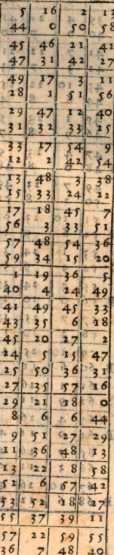 5 16 2 13
44 0 50 58
45 46 21 41
47 31 42 27
49 17 3 11
28 1 51 56
29 47 12 40
31 32 33 25
33 17 54 9
12 2 42 54
13 48 3 38
15 33 24 22
17 18 45 7
56 3 33 51
57 48 54 36
59 34 15 20
1 19 36 5
40 4 24 49
41 49 45 33
43 35 6 18
45 20 27 2
24 5 15 47
25 50 36 31
27 35 57 16
29 21 18 0
8 6 6 44
9 51 27 29
11 36 48 13
13 22 8 58
52 6 67 42
52 52 18 27
55 37 39 11
57 22 59 55
36 7